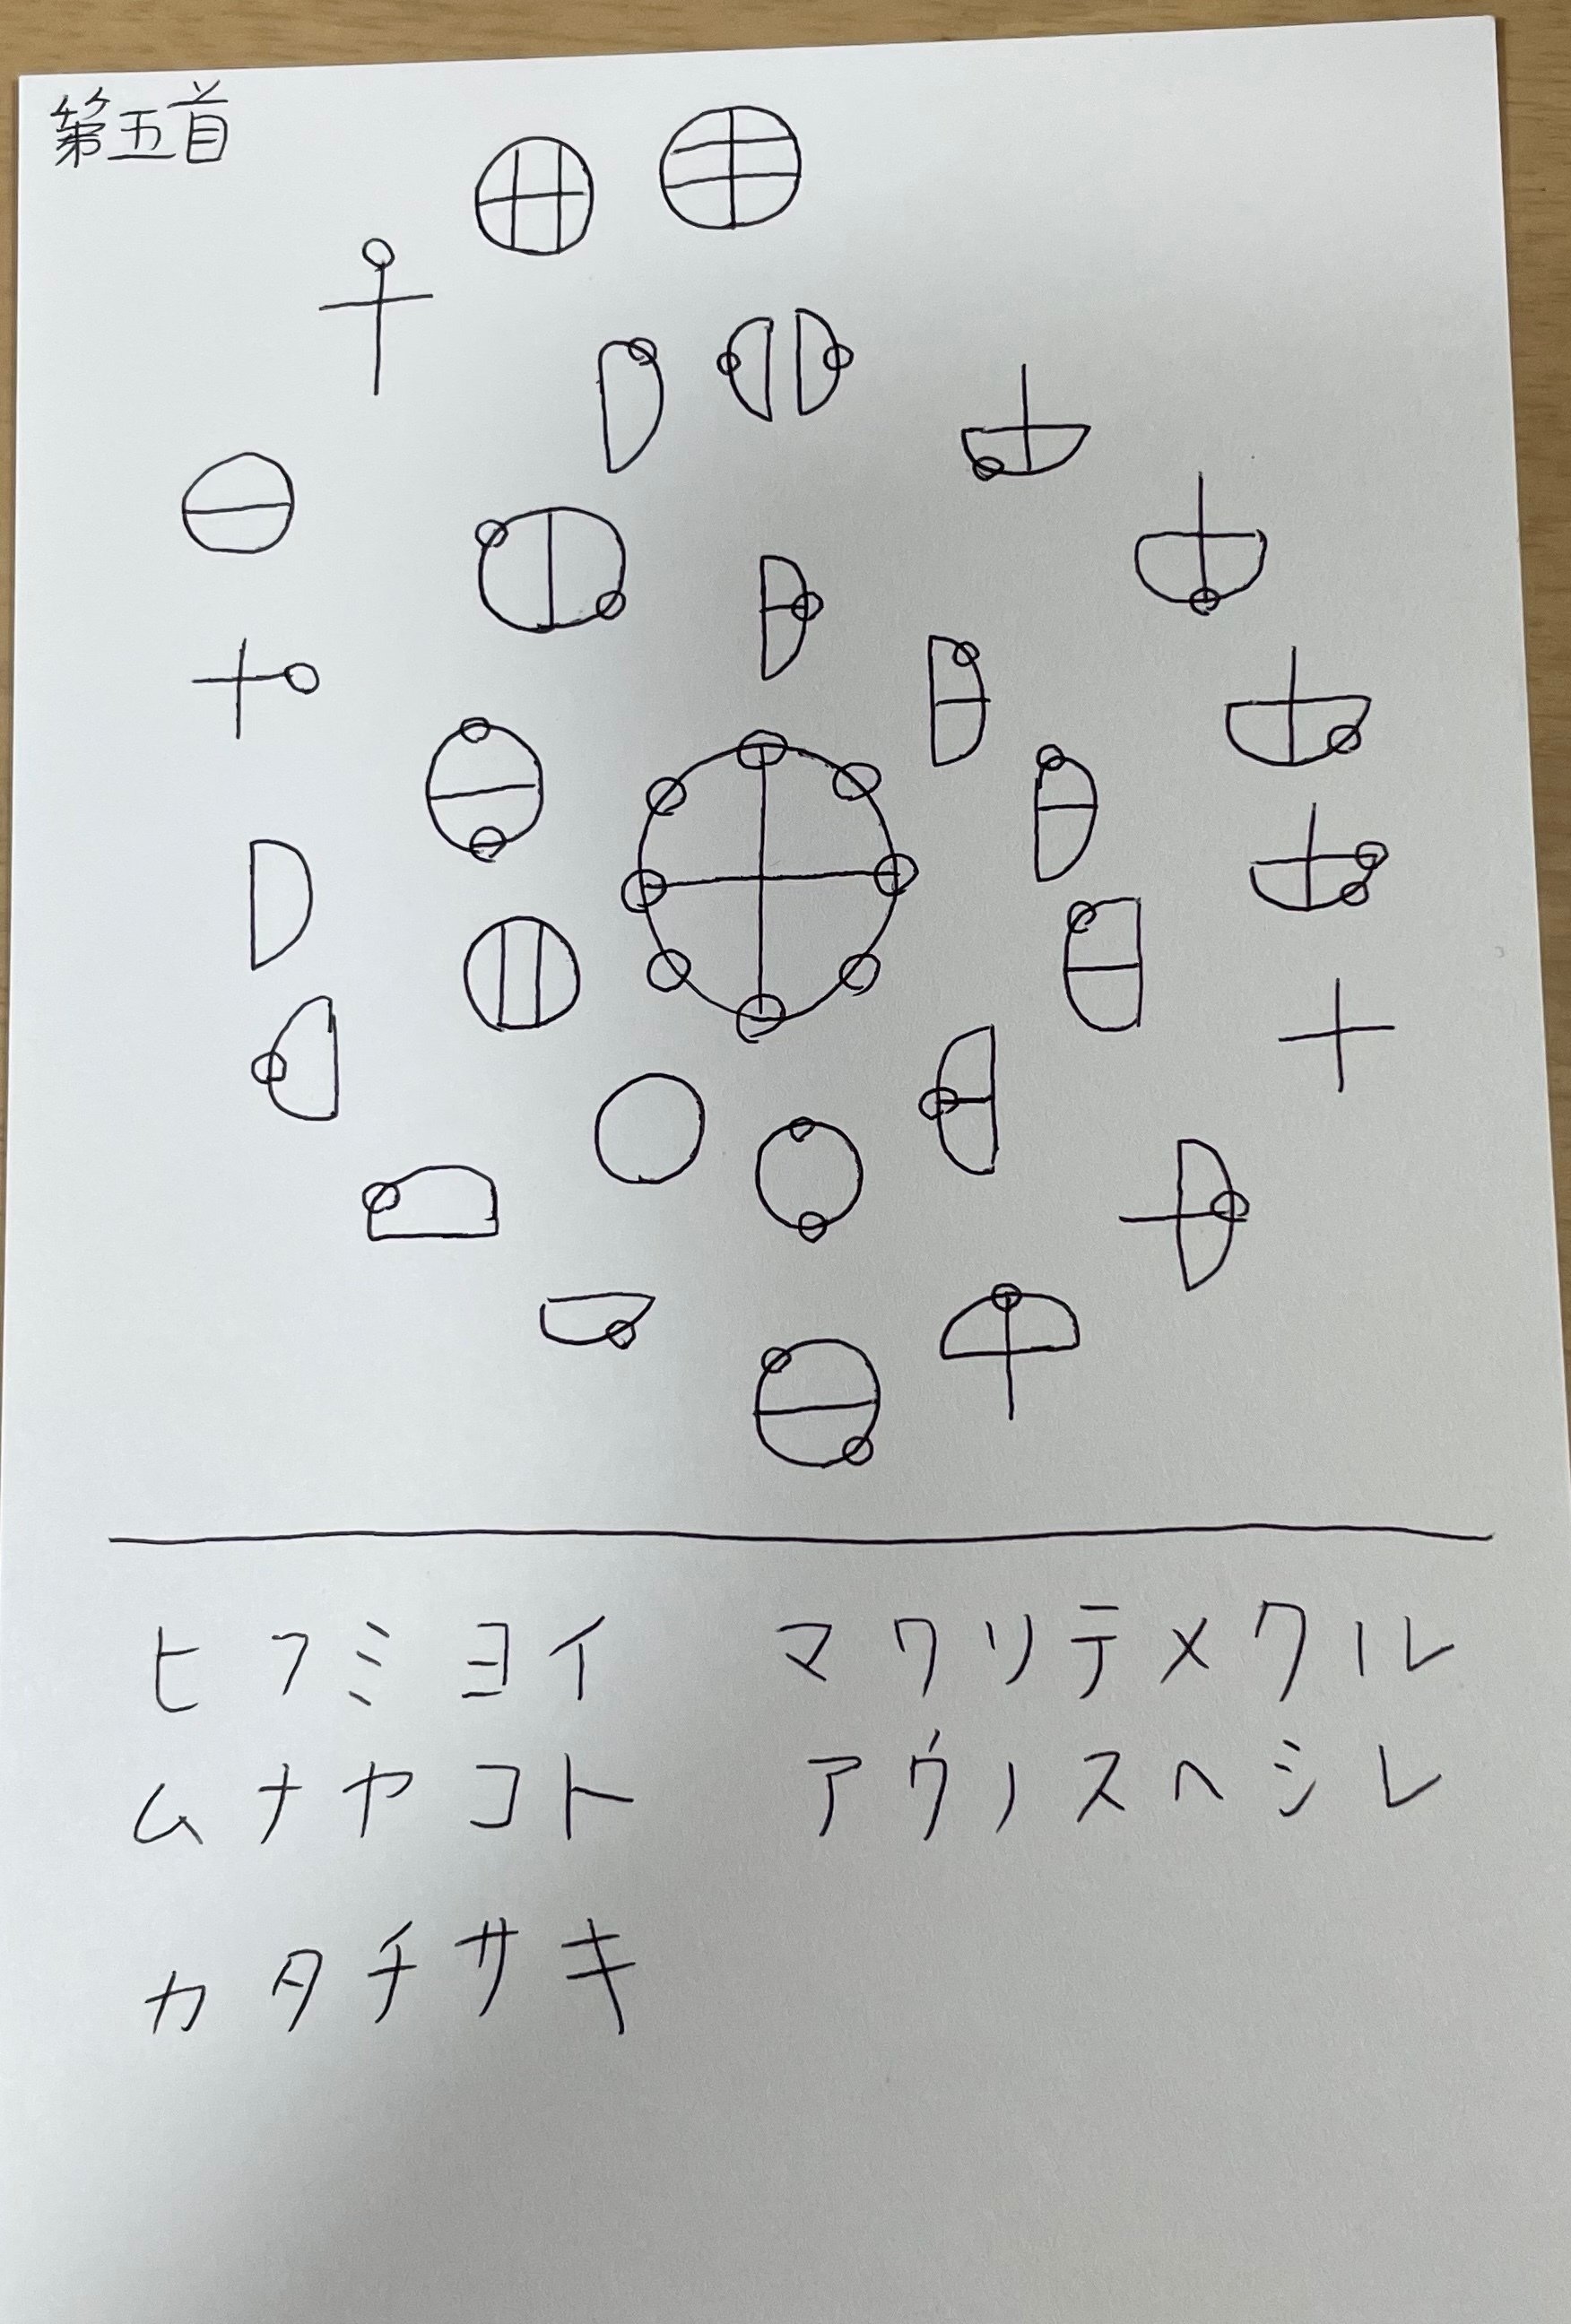 第五首
ヒフミヨイ マワリテメクル
ムナヤコト アウノスヘシレ
カタチサキ